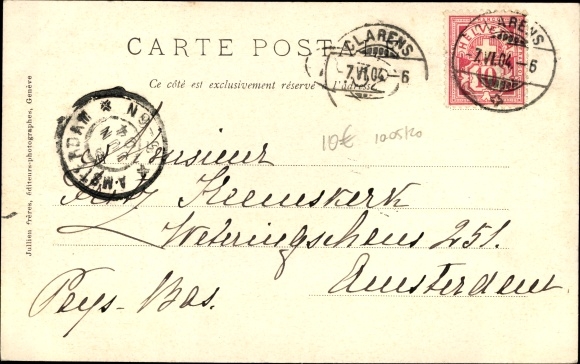 CARTE POSTALE
Ce côté est exclusivement réservé à l'adresse
CLARENS
7.VI.04.-6
CLARENS
7.VI.04.-6
HELVETIA
10
AMSTERDAM
10€
Monsieur
Heemskerk
Weteringschans 251.
Amsterdam
Pays-Bas.
Jullien frères, éditeurs-photographes, Genève